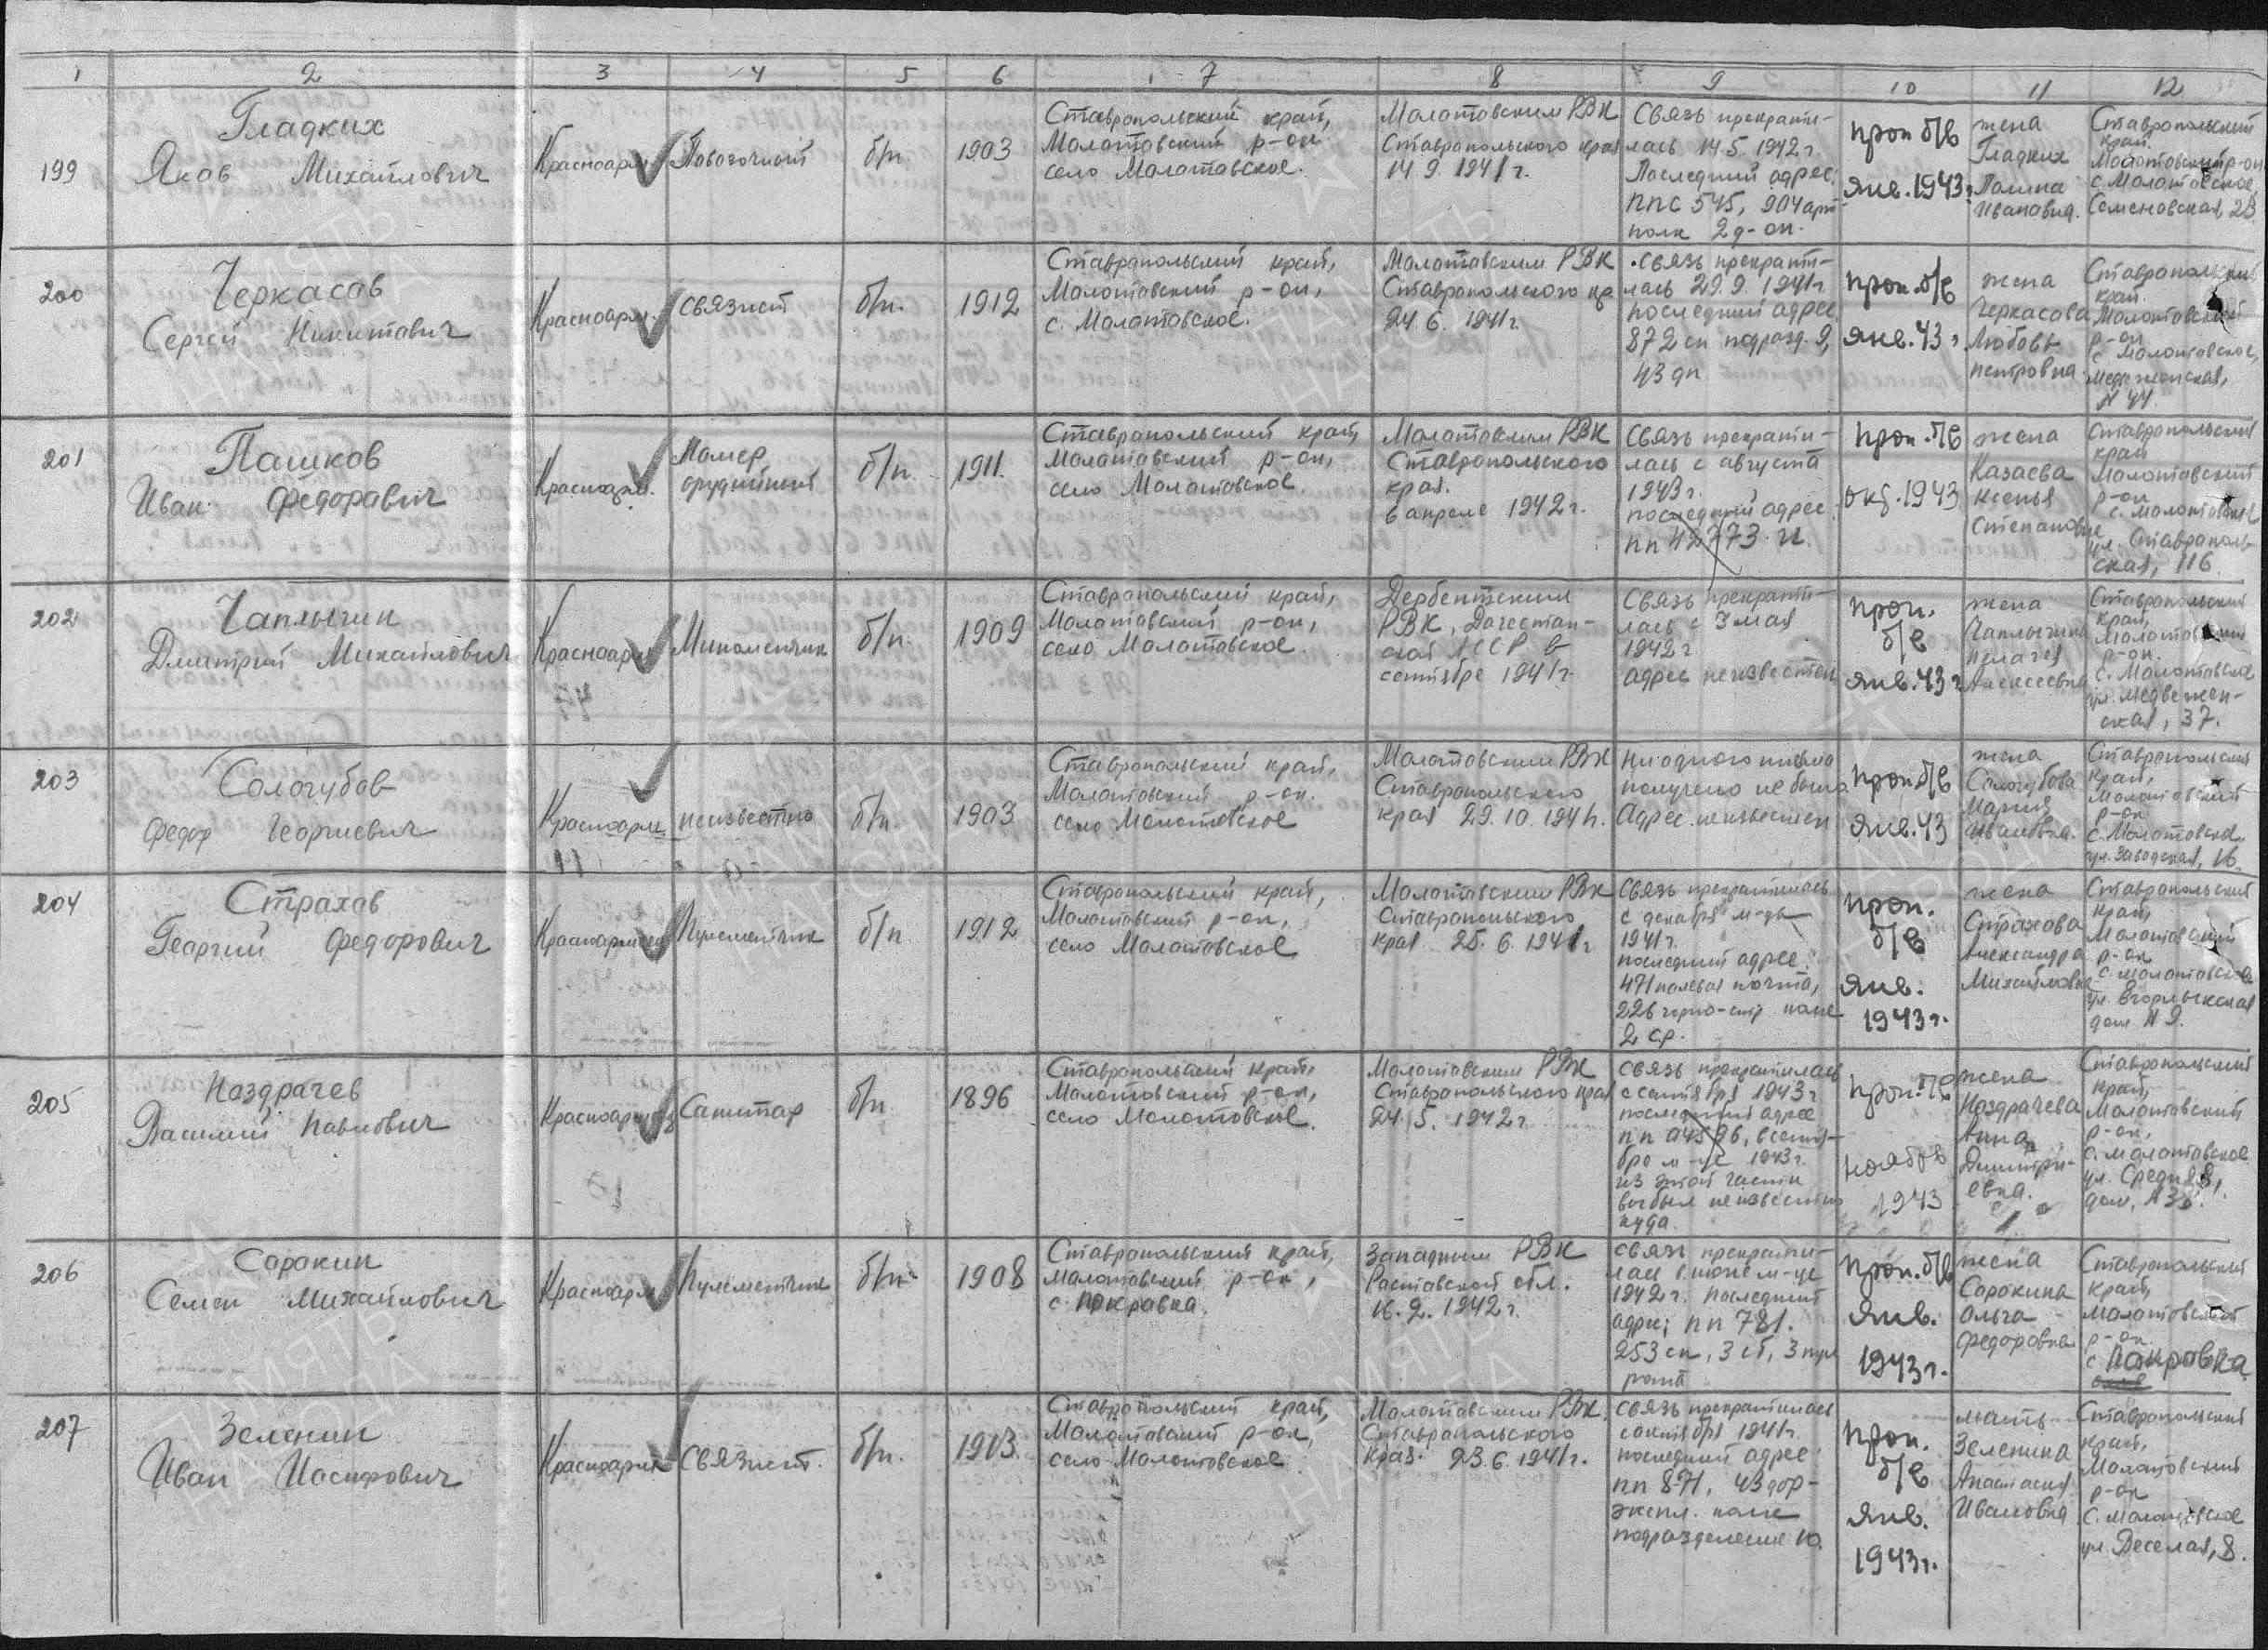 1 2 3 4 5 6 7 8 9 10 11 12
199
Гладких
Яков Михайлович
Красноарм.
Повозочный
б/п
1903
Ставропольский край,
Молотовский р-он
село Молотовское.
Молотовским РВК
Ставропольского края
14 9. 1941 г.
Связь прекрати-
лась 14 5. 1942 г
Последний адрес:
ппс 545, 904 арт-
полк 2 д-он.
проп б/в
янв. 1943 г
жена
Гладких
Полина
Ивановна.
Ставропольский
край.
Молотовский р-он
с. Молотовское,
Семеновская, 23
200
Черкасов
Сергей Никитович
Красноарм.
Связист
б/п.
1912
Ставропольский край,
Молотовский р-он,
с. Молотовское.
Молотовским РВК
Ставропольского кр
24 6. 1941 г.
связь прекрати-
лась 29. 9. 1941 г
последний адрес,
872 сп подразд. 9,
43 дп
проп. б/в
янв. 43 г
жена
Черкасова
Любовь
петровна.
Ставропольский
край.
Молотовский
р-он
с Молотовское,
медвеженская,
N 44.
201
Пашков
Иван Федорович
Красноарм.
Номер
орудийный
б/п.
1911.
Ставропольский край
Молотовский р-он,
село Молотовское.
Молотовским РВК
Ставропольского
края.
в апреле 1942 г.
Связь прекрати-
лась с августа
1943 г.
последний адрес.
пп 42773. И.
проп. б/в
окт. 1943
жена
Казаева
Ксенья
Степановна
Ставропольский
край
Молотовский
р-он
с. Молотовское
ул. Ставрополь-
ская, 116.
202
Чаплыгин
Дмитрий Михайлович
Красноарм
Минометчик
б/п.
1909
Ставропольский край,
Молотовский р-он,
село Молотовское.
Дербентским
РВК, Дагестан-
ской АССР в
сентябре 1941 г.
Связь прекрати-
лась с 3 мая
1942 г
адрес неизвестен
проп.
б/в
янв. 43 г
жена
Чаплыгина
Пелагея
Алексеевна
Ставропольский
край,
Молотовский
р-он.
с. Молотовское
ул. медвежен-
ская, 37.
203
Сологубов
Федор Георгиевич
Красноарм.
неизвестно
б/п.
1903
Ставропольский край,
Молотовский р-он.
село Молотовское
Молотовским РВК
Ставропольского
края 29. 10. 1941 г.
ни одного письма
получено не было
Адрес неизвестен
проп б/в
янв. 43
жена
Сологубова
Мария
Ивановна.
Ставропольский
край,
Молотовский
р-он
с. Молотовское
ул. Заводская, 16.
204
Страхов
Георгий Федорович
Красноармеец
Пулеметчик
б/п
1912
Ставропольский край,
Молотовский р-он,
село Молотовское
Молотовским РВК
Ставропольского
края 25. 6. 1941 г
Связь прекратилась
с декабря м-ца
1941 г.
последний адрес:
471 полевая почта,
226 горно-стр полк
2 ср.
проп.
б/в
янв.
1943 г.
жена
Страхова
Александра
Михайловна
Ставропольский
край,
Молотовский
р-он
с. молотовское
ул. Егорлыкская
дом N 9.
205
Наздрачев
Василий Павлович
Санитар
б/п
1896
Ставропольский край,
Молотовский р-он,
село Молотовское.
Молотовским РВК
Ставропольского края
24. 5. 1942 г
связь прекратилась
с сентября 1943 г
последний адрес
в сентя-
бре м-це 1943 г.
из этой части
выбыл неизвестно
куда.
проп. б/в
ноябрь
1943
жена
Наздрачева
Анна
Дмитри-
евна.
Ставропольский
край,
Молотовский
р-он,
с. молотовское
ул. Средняя,
дом,
206
Сорокин
Семен Михайлович
Красноарм
Пулеметчик
б/п
1908
Ставропольский край,
молотовский р-он,
с. покровка.
Западным РВК
Ростовской обл.
16. 2. 1942 г.
связь прекрати-
лась в июне м-це
1942 г. последний
адрес; пп 781.
253 сп, 3 сб, 3 пул
рота
проп. б/в
янв.
1943 г.
жена
Сорокина
Ольга
Федоровна
Ставропольский
край,
Молотовский
р-он.
с Покровка
207
Зеленин
Иван Иосифович
Красноарм
Связист.
б/п.
1913.
Ставропольский край,
Молотовский р-он,
село Молотовское
Молотовским РВК
Ставропольского
края. 23. 6. 1941 г.
Связь прекратилась
с октября 1941 г.
последний адрес:
пп 871, 43 дор-
экспл. полк
подразделение 10.
проп.
б/в
янв.
1943 г.
мать
Зеленина
Анастасия
Ивановна
Ставропольский
край,
Молотовский
р-он
с. Молотовское
ул. Веселая, 8.
ПАМЯТЬ
НАРОДА